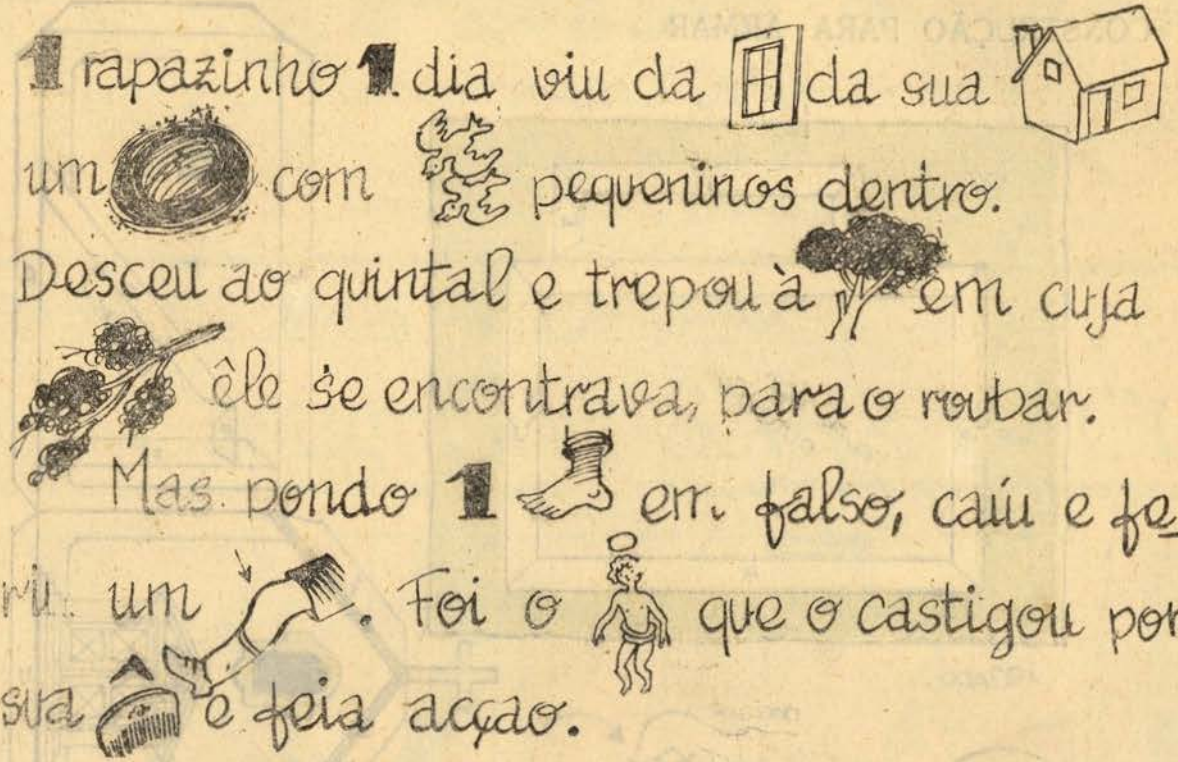 1 rapazinho 1 dia viu da da sua
um com pequeninos dentro.
Desceu ao quintal e trepou à em cuja
êle se encontrava, para o roubar.
Mas pondo 1 em falso, caíu e fe
riu um . Foi o que o castigou por
sua e feia acção.